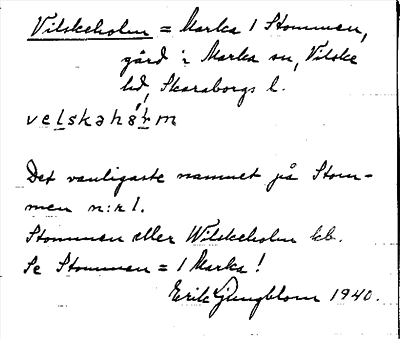 Vilskeholm = Marka 1 Stommen,
gård i Marka sn, Vilske
hd, Skaraborgs l.
velskahåɫm
Det vanligaste namnet på Stom-
men n:r 1.
Stommen eller Wilskeholm kb.
Se Stommen = 1 Marka!
Erik Ljungblom 1940.